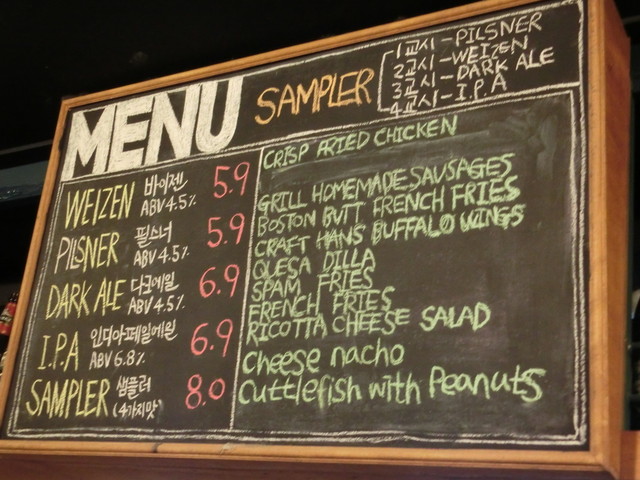 MENU
SAMPLER
1교시-PILSNER
2교시-WEIZEN
3교시-DARK ALE
4교시-I.P.A
WEIZEN 바이젠 ABV 4.5% 5.9
PILSNER 필스너 ABV 4.5% 5.9
DARK ALE 다크에일 ABV 4.5% 6.9
I.P.A 인디아페일에일 ABV 6.8% 6.9
SAMPLER 샘플러 (4가지맛) 8.0
CRISP FRIED CHICKEN
GRILL HOMEMADE SAUSAGES
BOSTON BUTT FRENCH FRIES
CRAFT HANS BUFFALO WINGS
QUESA DILLA
SPAM FRIES
FRENCH FRIES
RICOTTA CHEESE SALAD
Cheese nacho
Cuttlefish with Peanuts